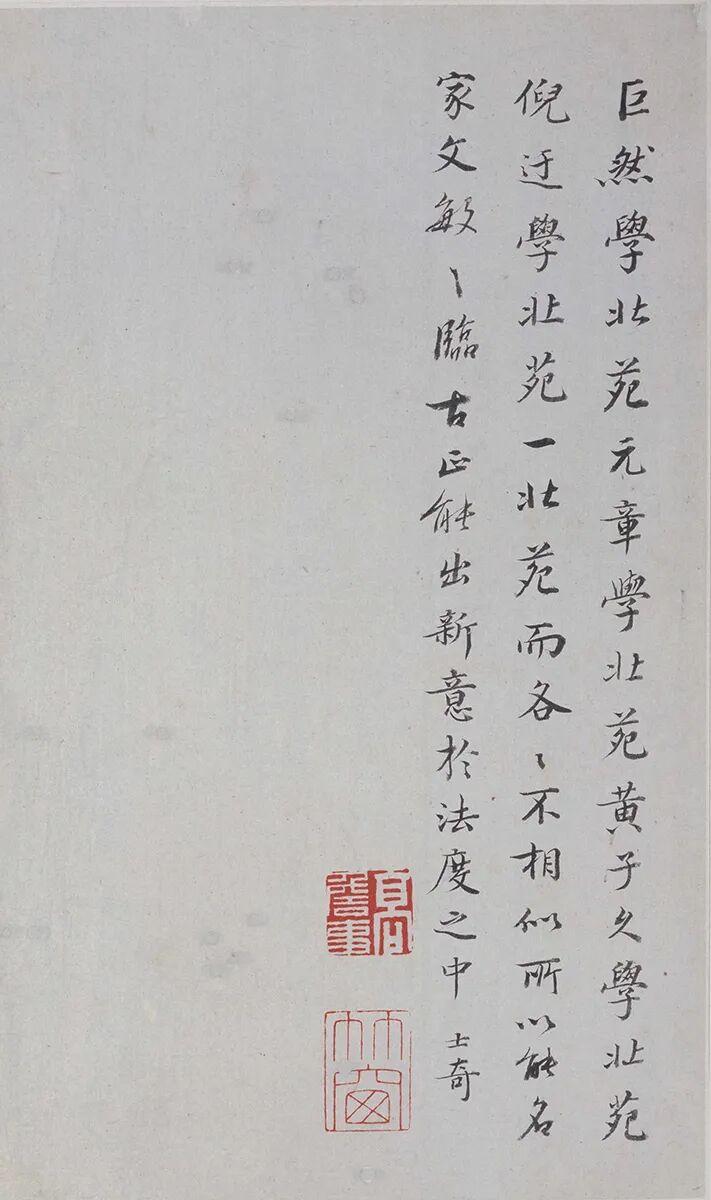 巨然學北苑元章學北苑黄子久學北苑
倪迂學北苑一北苑而各〻不相似所以能名
家文敏〻臨古正能出新意於法度之中 士奇
竹窗